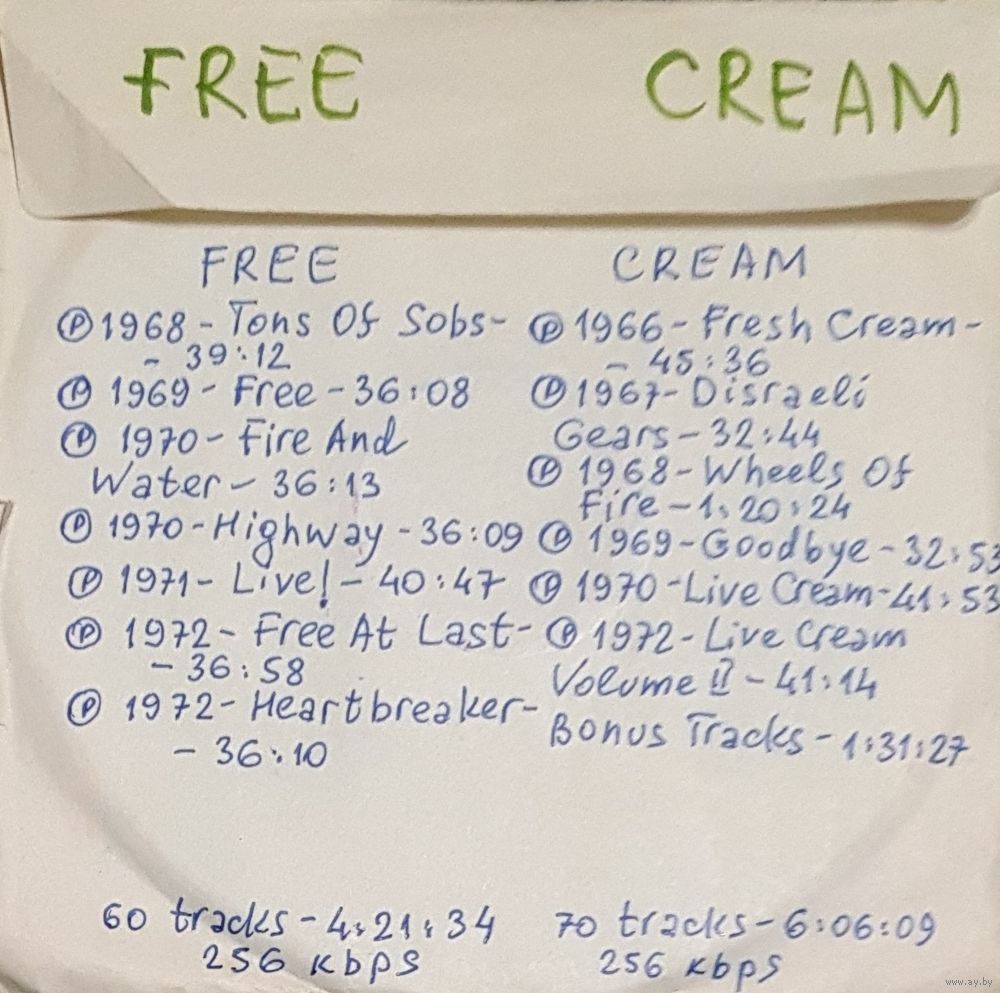 FREE CREAM
FREE
Ⓟ 1968 - Tons Of Sobs -
- 39:12
Ⓟ 1969 - Free - 36:08
Ⓟ 1970 - Fire And
Water - 36:13
Ⓟ 1970 - Highway - 36:09
Ⓟ 1971 - Live! - 40:47
Ⓟ 1972 - Free At Last -
- 36:58
Ⓟ 1972 - Heartbreaker -
- 36:10
60 tracks - 4:21:34
256 kbps
CREAM
Ⓟ 1966 - Fresh Cream -
- 45:36
Ⓟ 1967 - Disraeli
Gears - 32:44
Ⓟ 1968 - Wheels Of
Fire - 1:20:24
Ⓟ 1969 - Goodbye - 32:53
Ⓟ 1970 - Live Cream - 41:53
Ⓟ 1972 - Live Cream
Volume II - 41:14
Bonus Tracks - 1:31:27
70 tracks - 6:06:09
256 kbps
www.ay.by